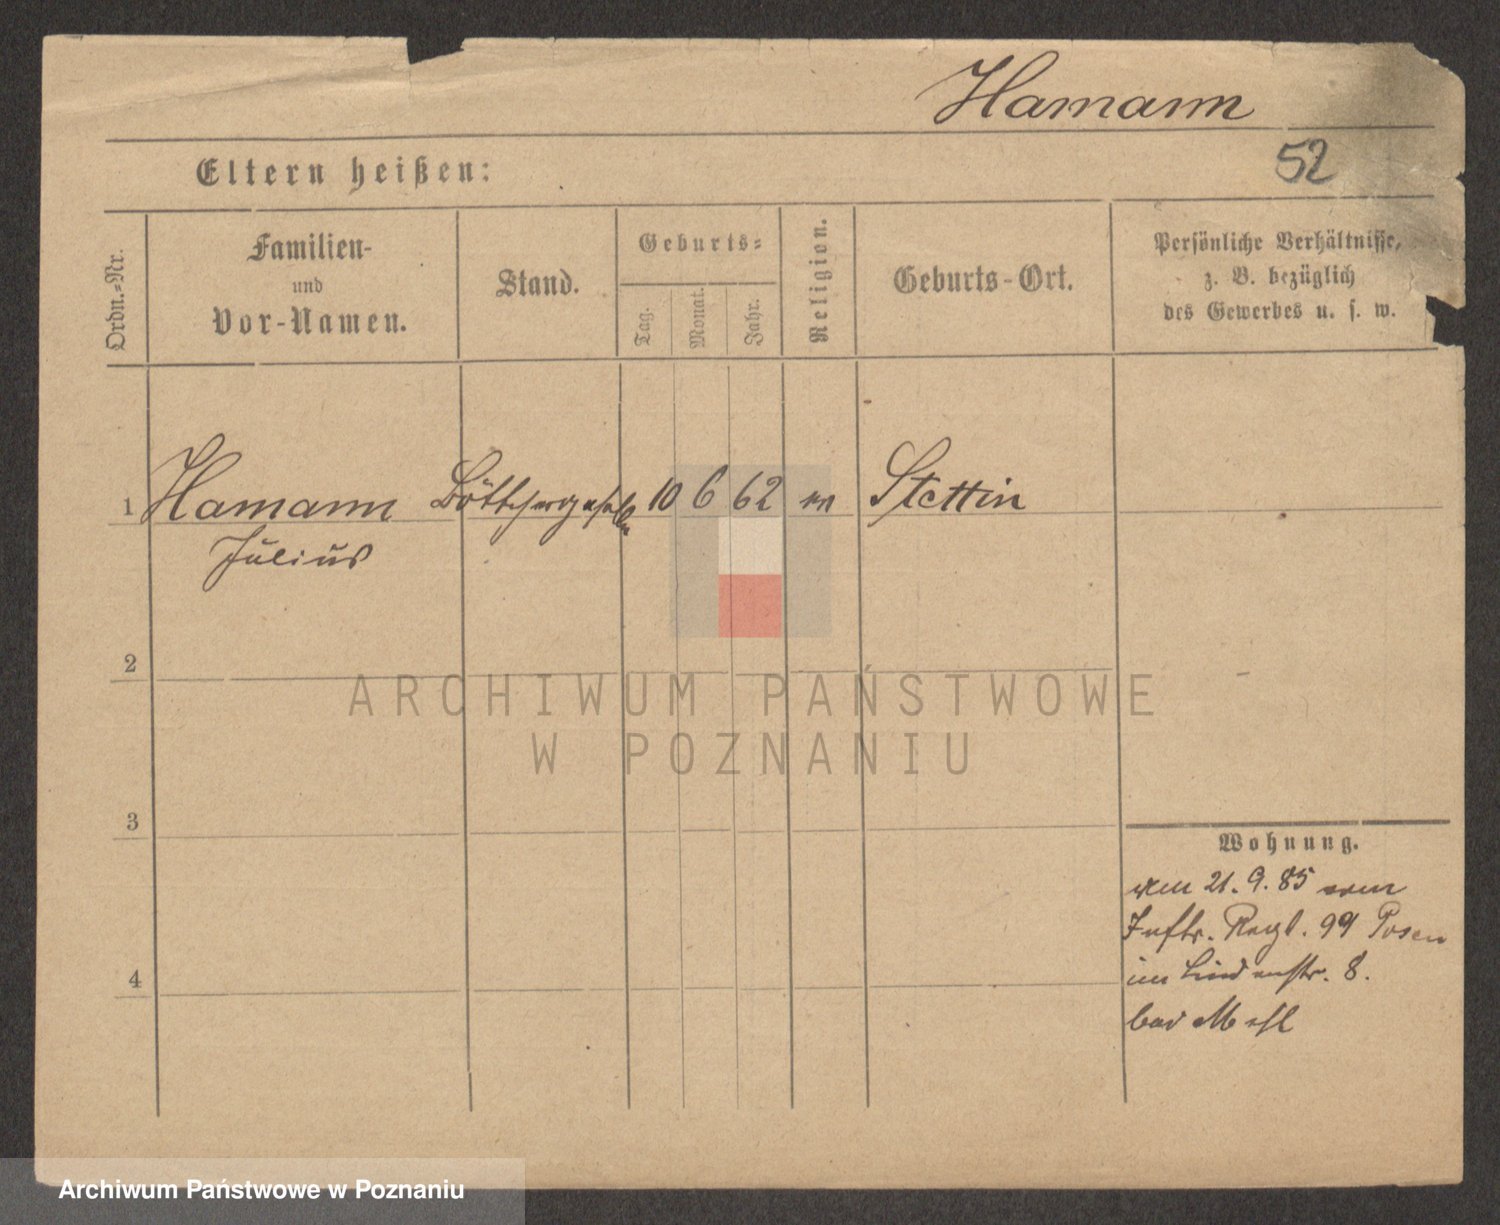 Hamann
52
Eltern heißen:
Ordn.=Nr.
Familien-
und
Vor-Namen.
Stand.
Geburts=
Tag.
Monat.
Jahr.
Religion.
Geburts-Ort.
Persönliche Verhältnisse,
z. B. bezüglich
des Gewerbes u. s. w.
1 Hamann Böttchergeselle 10 6 62 Stettin
Julius
2
3
4
Wohnung.
21. 9. 85 vom
Inftr. Regt. 99 Posen
in Lindenstr. 8.
bei
ARCHIWUM PAŃSTWOWE
W POZNANIU
Archiwum Państwowe w Poznaniu